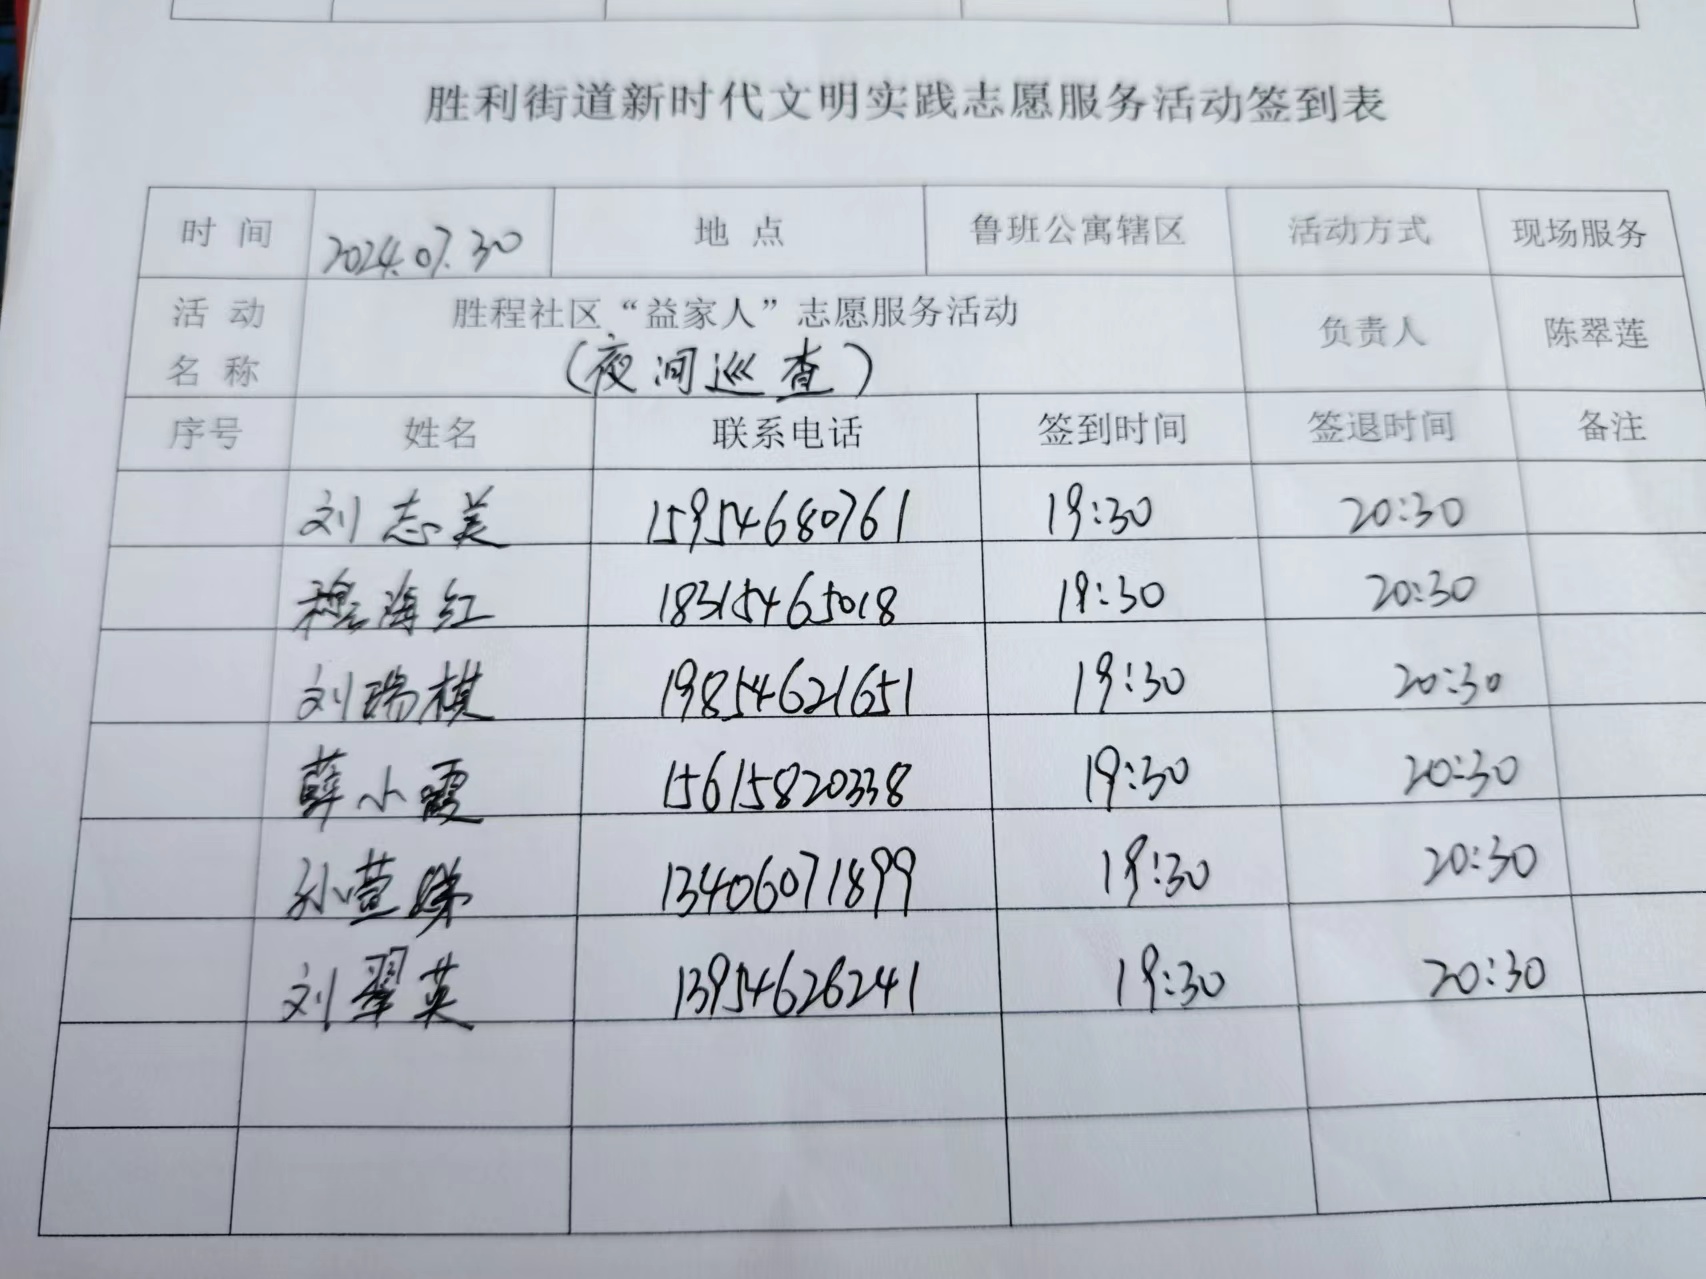 胜利街道新时代文明实践志愿服务活动签到表
时 间 2024.07.30 地 点 鲁班公寓辖区 活动方式 现场服务
活 动 名 称 胜程社区“益家人”志愿服务活动 负责人 陈翠莲
(夜间巡查)
序号 姓名 联系电话 签到时间 签退时间 备注
刘志美 15954680761 19:30 20:30
穆海红 18315465018 19:30 20:30
刘瑞棋 19854621651 19:30 20:30
薛小霞 15615820338 19:30 20:30
孙萱娣 13406071899 19:30 20:30
刘翠英 13954626241 19:30 20:30